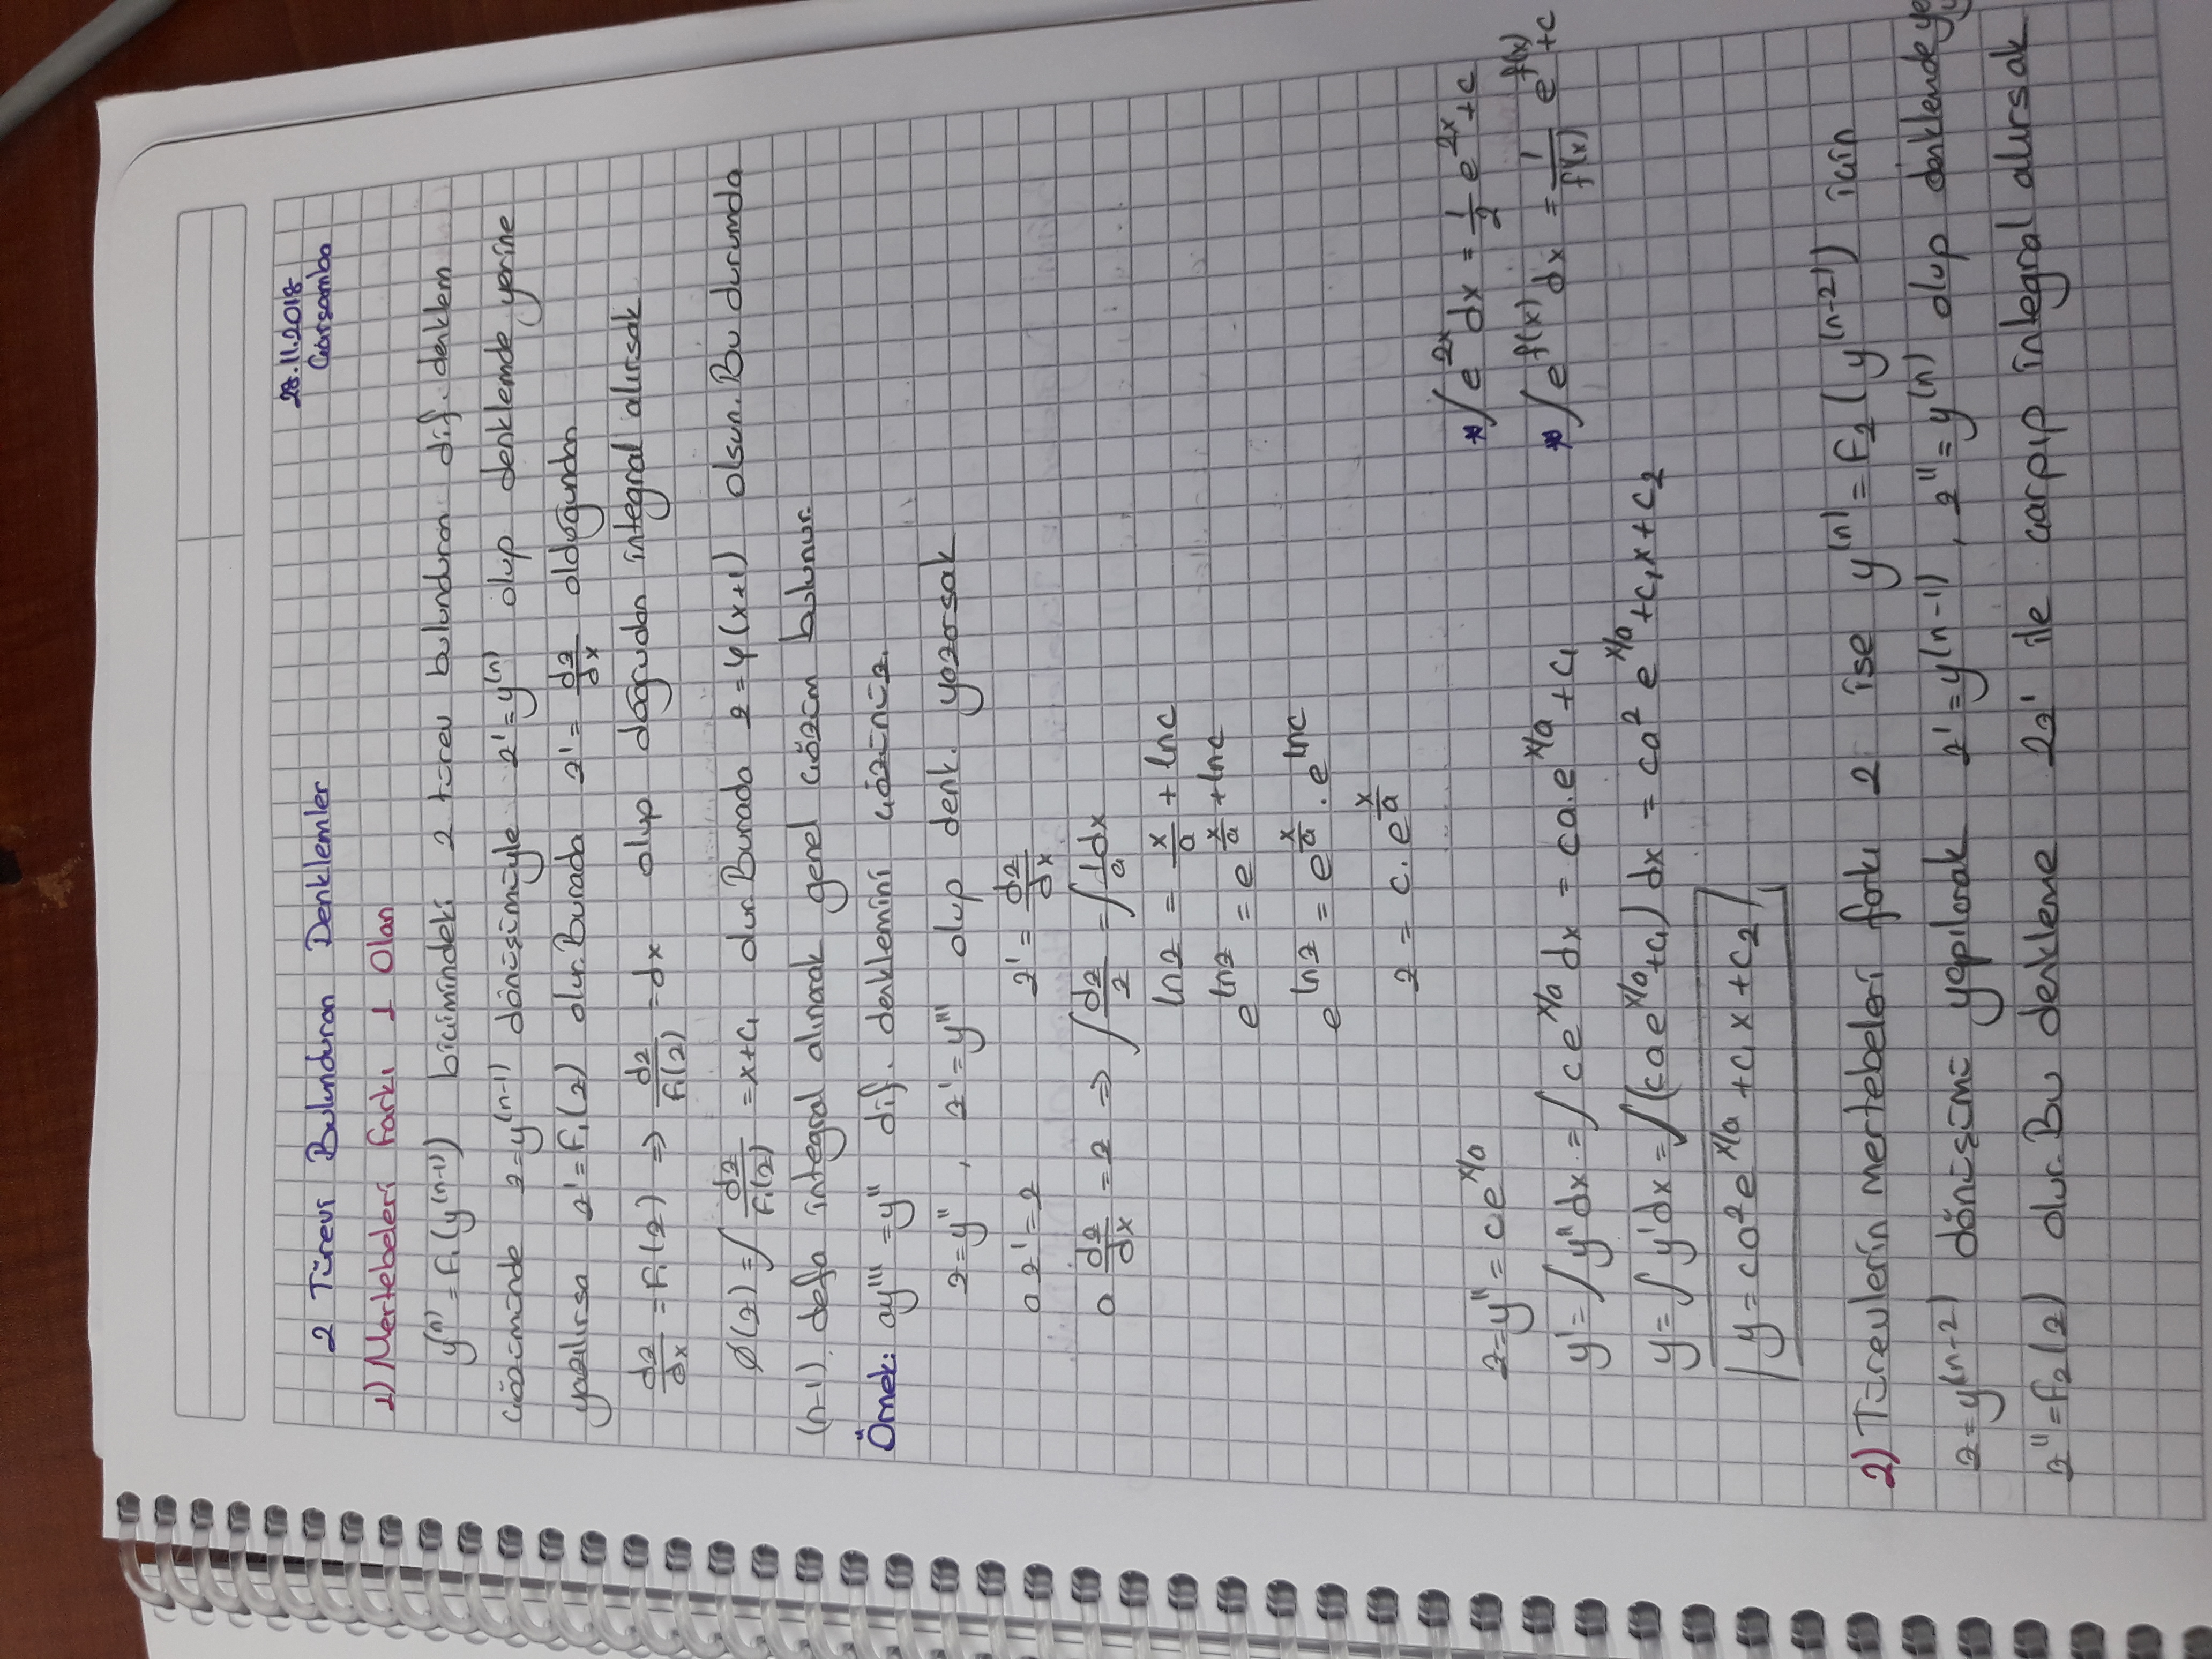 28.11.2018
2 Türevi Bulunduran Denklemler
Çarşamba
1) Mertebeleri farkı 1 Olan
y⁽ⁿ⁾ = F₁(y⁽ⁿ⁻¹⁾) biçimindeki 2 türev bulunduran dif. denklem
çözümünde z=y⁽ⁿ⁻¹⁾ dönüşümüyle z' = y⁽ⁿ⁾ olup denklemde yerine
yazılırsa z' = F₁(z) olur. Burada z' = dz/dx olduğundan
dz/dx = F₁(z) ⇒ dz/F₁(z) = dx olup doğrudan integral alırsak
∅(z) = ∫ dz/F₁(z) = x+c₁ dur. Burada z = φ(x+1) olsun. Bu durumda
(n-1). defa integral alınarak genel çözüm bulunur.
Örnek: ay''' = y'' dif. denklemini çözünüz.
z=y'' , z' = y''' olup denk. yazarsak
a z' = z    z' = dz/dx
a dz/dx = z ⇒ ∫ dz/z = ∫ 1/a dx
ln z = x/a + ln c
e^(ln z) = e^(x/a + ln c)
e^(ln z) = e^(x/a) . e^(ln c)
z = c. e^(x/a)
* ∫ e^(2x) dx = 1/2 e^(2x) + c
z=y'' = ce^(x/a)
* ∫ e^(f(x)) dx = 1/f'(x) e^(f(x)) + c
y' = ∫ y'' dx = ∫ ce^(x/a) dx = ca.e^(x/a) + c₁
y = ∫ y' dx = ∫ (cae^(x/a) + c₁) dx = ca² e^(x/a) + c₁x + c₂
y = ca²e^(x/a) + c₁x + c₂
2) Türevlerin mertebeleri farkı 2 ise y⁽ⁿ⁾ = F₂(y⁽ⁿ⁻²⁾) için
z=y⁽ⁿ⁻²⁾ dönüşümü yapılarak z' = y⁽ⁿ⁻¹⁾ , z'' = y⁽ⁿ⁾ olup denklemde
z'' = F₂(z) olur. Bu denkleme 2z' ile çarpıp integral alırsak